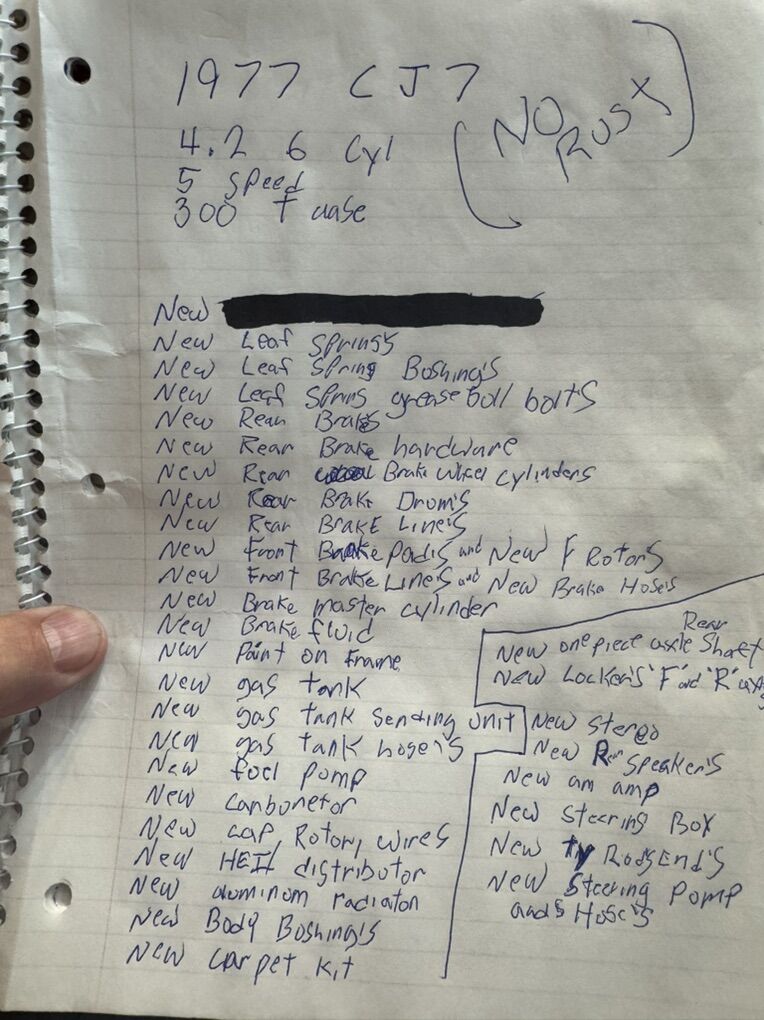 1977 CJ7
(NO RUST)
4.2 6 Cyl
5 Speed
300 T case
New
New Leaf Spring's
New Leaf Spring Boshing's
New Leaf Spring grease boll bolts
New Rear Brakes
New Rear Brake hardware
New Rear Brake Wheel cylinders
New Rear Brake Drom's
New Rear BRAKE Line's
New Front Brake Pad's and New F Rotor's
New Front Brake Line's and New Brake Hose's
New Brake master cylinder
New Brake fluid
New Paint on Frame
New gas tank
New gas tank sending unit
New gas tank hose's
New fuel pomp
New carboretor
New cap, Rotor, wires
New HEI distributor
New aluminom radiator
New Body Boshing's
New carpet kit
Rear
New one piece axle Shaft
New Locker's "F" and "R"
New Stereo
New Speaker's
New am amp
New Steering Box
New Ty Rods End's
New Steering Pomp
and Hose's